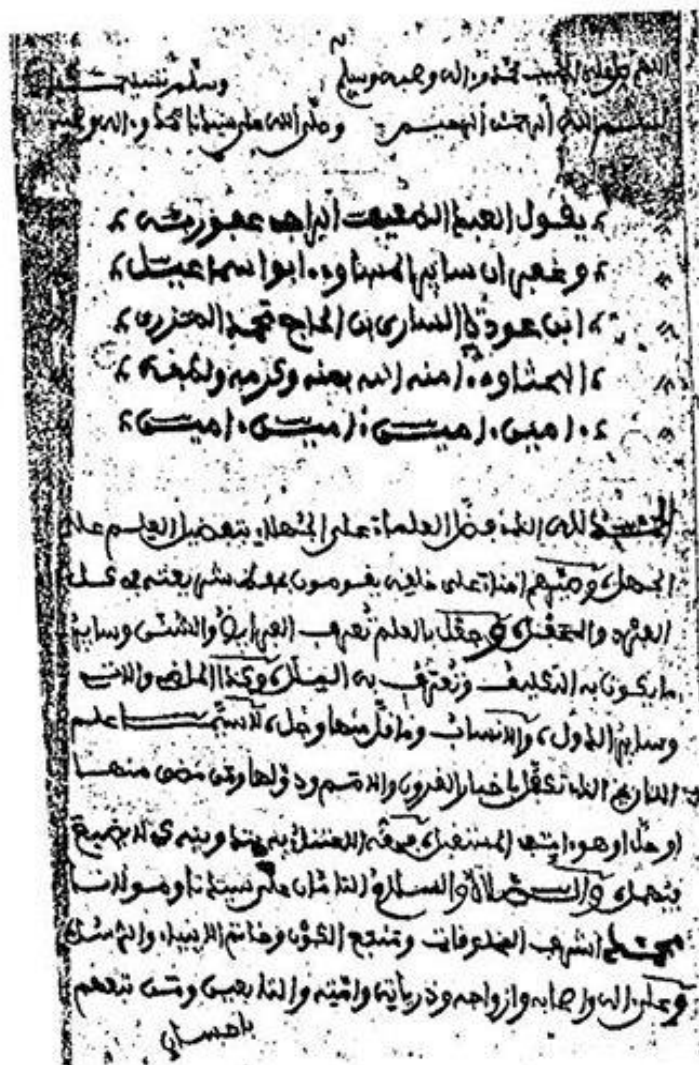 اللهم صل على الحبيب محمد وءاله وصحبه وسلم وسلم تسليما
بسم الله الرحمن الرحيم وصلى الله على سيدنا محمد وءاله وصحبه
يقول العبد الضعيف الراجي عفو ربه
وغفران ساير المساوي ابو اسماعيل
ابن عودة الساري بن الحاج محمد المزري
البحثاوي ءامنه الله بمنه وكرمه ولطفه
ءامين ءامين ءامين ءامين
الحمد لله الذي فضل العلماء على الجهلاء بتفضيل العلم على
الجهل، وصيرهم امناء على خلقه يقومون بحفظ شريعته في كل
الفرض والنفل، وجعل بالعلم تعرف الفرايض والسنن وساير
ما يكون به التكليف ونعترف به الفضل، وكذا الماضي والاتي
وساير الدول، والانساب وما قل منها وجل، لاسيما علم
التاريخ الذي تكفل باخبار القرون والامم ودولها ومن مضى منها
او حل او هو ءات في المستقبل، فحق الاعتناء به وتدوينه كي لا يضيع
فيهمل، والصلاة والسلام التامان على سيدنا ومولانا
محمد اشرف المخلوقات ومنبع الكون وخاتم الانبياء والرسل
وعلى ءاله واصحابه وازواجه وذرياته وامته والتابعين ومن تبعهم
باحسان